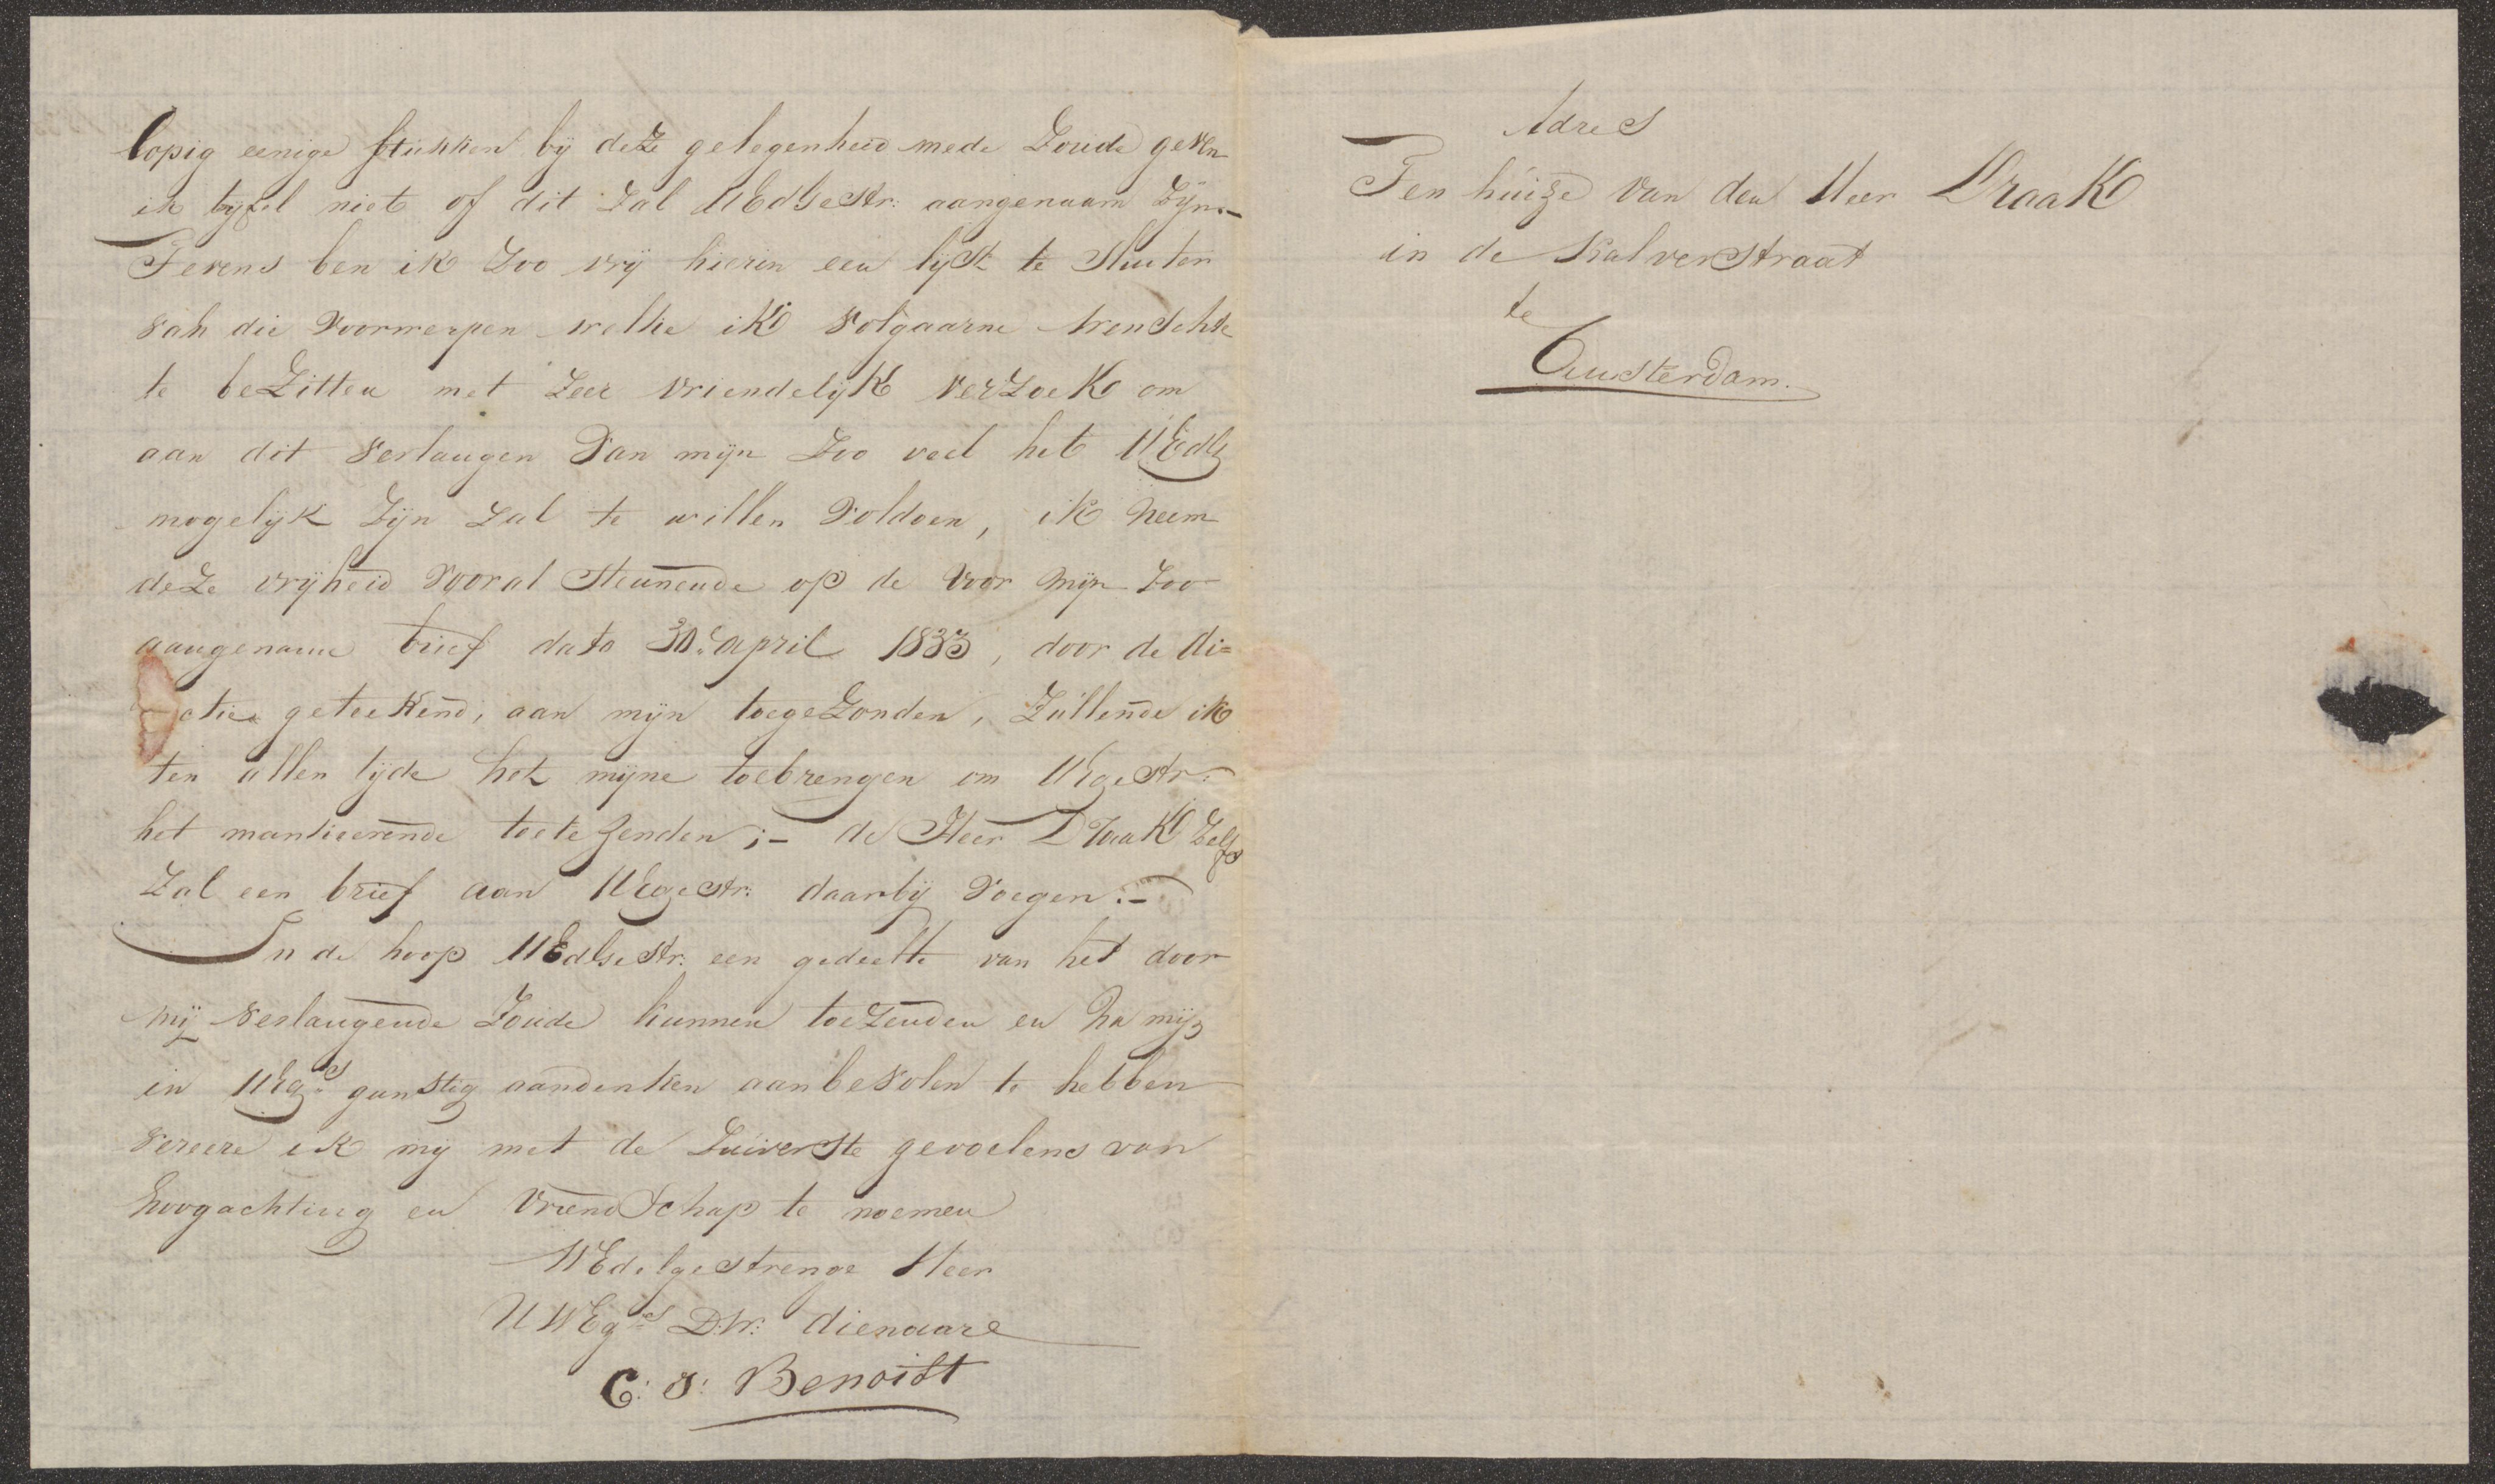 lopig eenige stukken bij deze gelegenheid mede Zoude geven
ik tyfel niet of dit Zal UEdGestr: aangenaam Zijn.-
Tevens ben ik Zoo vrij hierin een lijst te Sluiten
van die voorwerpen welke ik volgaarne wenschte
te beZitten met Zeer vriendelijk verZoek om
aan dit verlangen van mijn Zoo veel het UEdG
mogelijk Zijn Zal te willen voldoen, ik neem
deZe vrijheid vooral Steunende op de voor mijn Zoo
aangename brief dato 30e april 1833, door de di=
-ctie geteekend, aan mijn toegeZonden, Zullende ik
ten allen tijde het mijne toebrengen om UEGestr:
het mankerende toetezenden;- de Heer Draak Zelfs
Zal een brief aan UEGestr: daarbij voegen.-
In de hoop UEdGestr: een gedeelte van het door
mij verlangende Zoude kunnen toeZenden en na mij
in UEGs gunstig aandenken aanbevolen te hebben
vereere ik mij met de Zuiverste gevoelens van
hoogachting en vriendschap te noemen
WEdelgestrenge Heer
UWEgs D.W: dienaare
C: J: Benoist
Adres
Ten huize van den Heer Draak
in de Kalverstraat
te
Amsterdam.